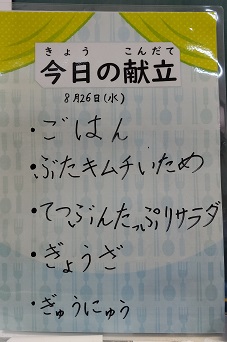 きょう こんだて
今日の献立
8月26日(水)
・ごはん
・ぶたキムチいため
・てつぶんたっぷりサラダ
・ぎょうざ
・ぎゅうにゅう